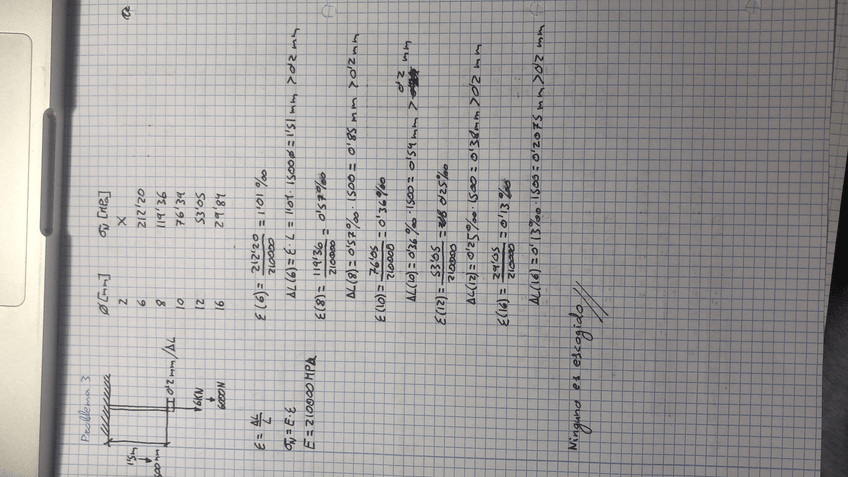 Problema 3
1'5m
1500mm
0'2 mm/ΔL
6KN
6000N
Ø[mm] σN [MPa]
2 X
6 212'20
8 119'36
10 76'39
12 53'05
16 29'84
ε = ΔL/L
σN = E·ε
E = 210000 MPa
ε(6) = 212'20/210000 = 1'01 ‰
ΔL(6) = ε·L = 1'01·1500 = 1'51 mm > 0'2 mm
ε(8) = 119'36/210000 = 0'57‰
ΔL(8) = 0'57‰·1500 = 0'85 mm > 0'2 mm
ε(10) = 76'05/210000 = 0'36‰
ΔL(10) = 0'36‰·1500 = 0'54 mm > 0'2 mm
ε(12) = 53'05/210000 = 0'25‰
ΔL(12) = 0'25‰·1500 = 0'38mm > 0'2 mm
ε(16) = 29'05/210000 = 0'13‰
ΔL(16) = 0'13‰·1500 = 0'2075 mm > 0'2 mm
Ninguno es escogido